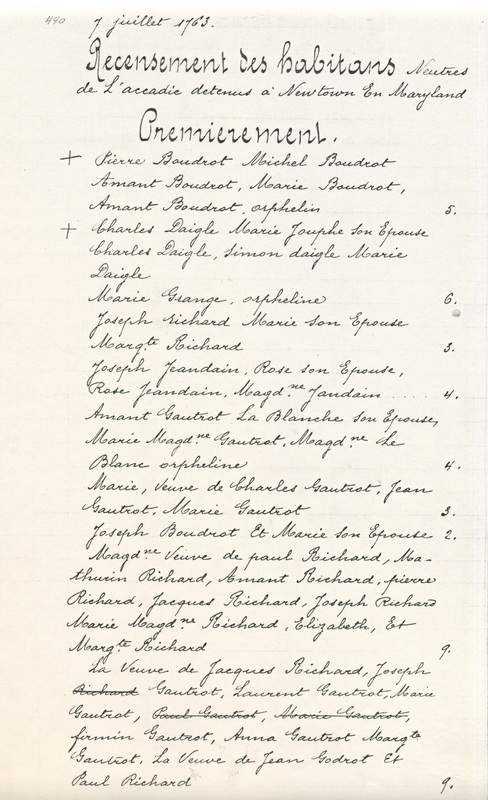 490
7 juillet 1763.
Recensement des habitans Neutres
de L'accadie detenus à Newtown En Maryland
Premierement.
+ Pierre Boudrot Michel Boudrot
Amant Boudrot, Marie Boudrot,
Amant Boudrot, orphelin 5.
+ Charles Daigle Marie Jouphe son Epouse
Charles Daigle, Simon daigle Marie
Daigle
Marie Grange, orpheline 6.
Joseph richard Marie son Epouse
Margte Richard 3.
Joseph Jeandain, Rose son Epouse,
Rose Jeandain, Magdne Jandain ..... 4.
Amant Gautrot La Blanche son Epouse,
Marie Magdne Gautrot, Magdne Le
Blanc orpheline 4.
Marie, Veuve de Charles Gautrot, Jean
Gautrot, Marie Gautrot 3.
Joseph Boudrot Et Marie son Epouse 2.
Magdne Veuve de paul Richard, Ma-
thurin Richard, Amant Richard, pierre
Richard, Jacques Richard, Joseph Richard
Marie Magdne Richard, Elizabeth, Et
Margte Richard 9.
La Veuve de Jacques Richard, Joseph
Richard Gautrot, Laurent Gautrot, Marie
Gautrot, Paul Gautrot, Marie Gautrot,
firmin Gautrot, Anna Gautrot Margte
Gautrot, La Veuve de Jean Godrot Et
Paul Richard 9.